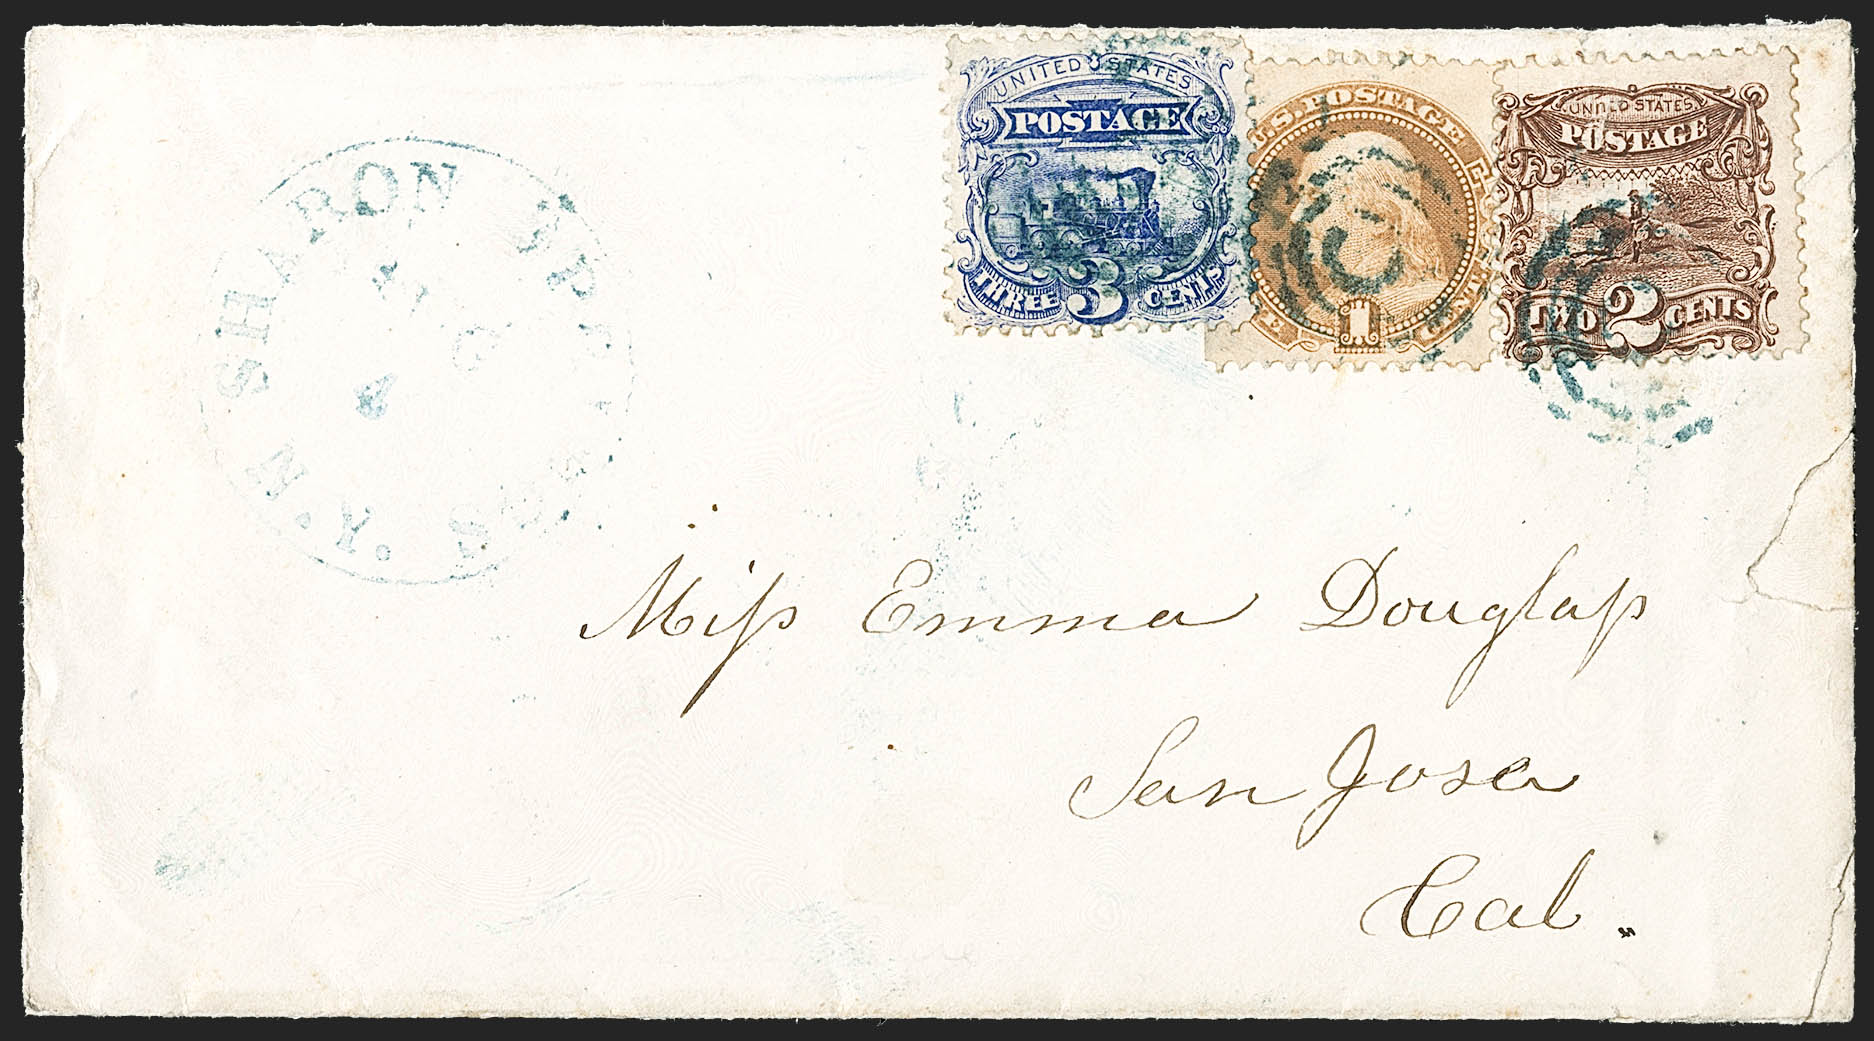 UNITED STATES
POSTAGE
3
THREE CENTS
U.S. POSTAGE
1
UNITED STATES
POSTAGE
TWO 2 CENTS
SHARON SPRINGS
N.Y.
AUG
4
Miss Emma Douglass
San Jose
Cal.